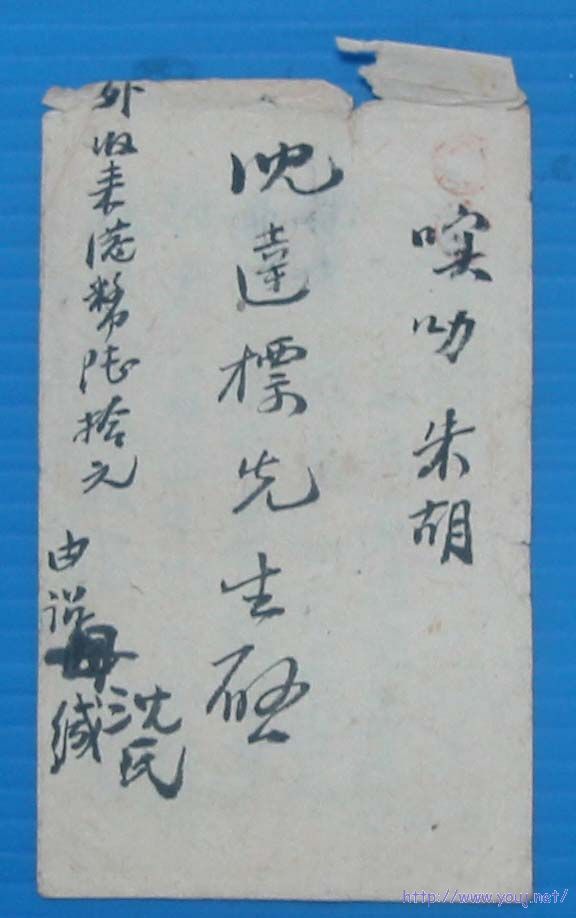 噗叻朱胡
沈達標先生啟
外收来港幣陸拾元
由詔
沈氏
緘
http://www.youj.net/